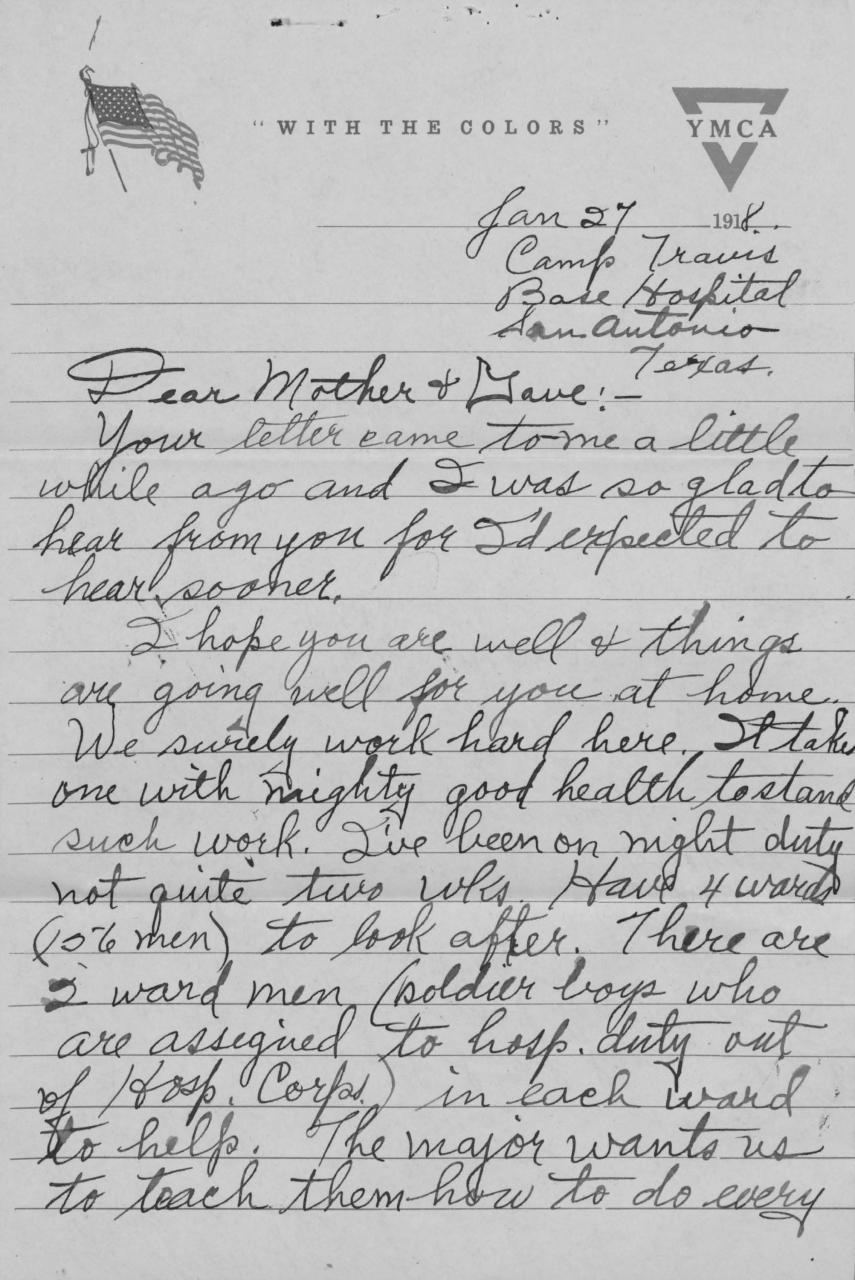 "WITH THE COLORS"
YMCA
Jan 27 1918.
Camp Travis
Base Hospital
San Antonio
Texas.
Dear Mother & Dave:-
Your letter came to me a little
while ago and I was so glad to
hear from you for I'd expected to
hear sooner.
I hope you are well & things
are going well for you at home.
We surely work hard here. It takes
one with mighty good health to stand
such work. I've been on night duty
not quite two wks Have 4 wards
men) to look after. There are
2 ward men (soldier boys who
are assigned to hosp. duty out
of Hosp. Corps.) in each ward
to help. The major wants us
to teach them how to do every